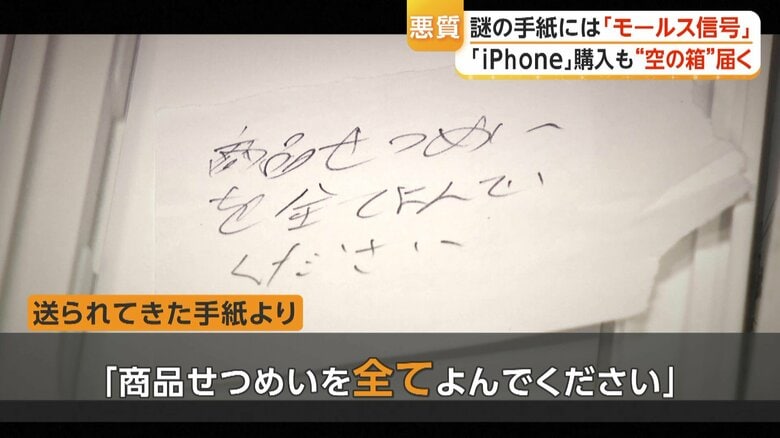 悪質
謎の手紙には「モールス信号」
「iPhone」購入も“空の箱”届く
商品せつめい
を全てよんで
ください
送られてきた手紙より
「商品せつめいを全てよんでください」